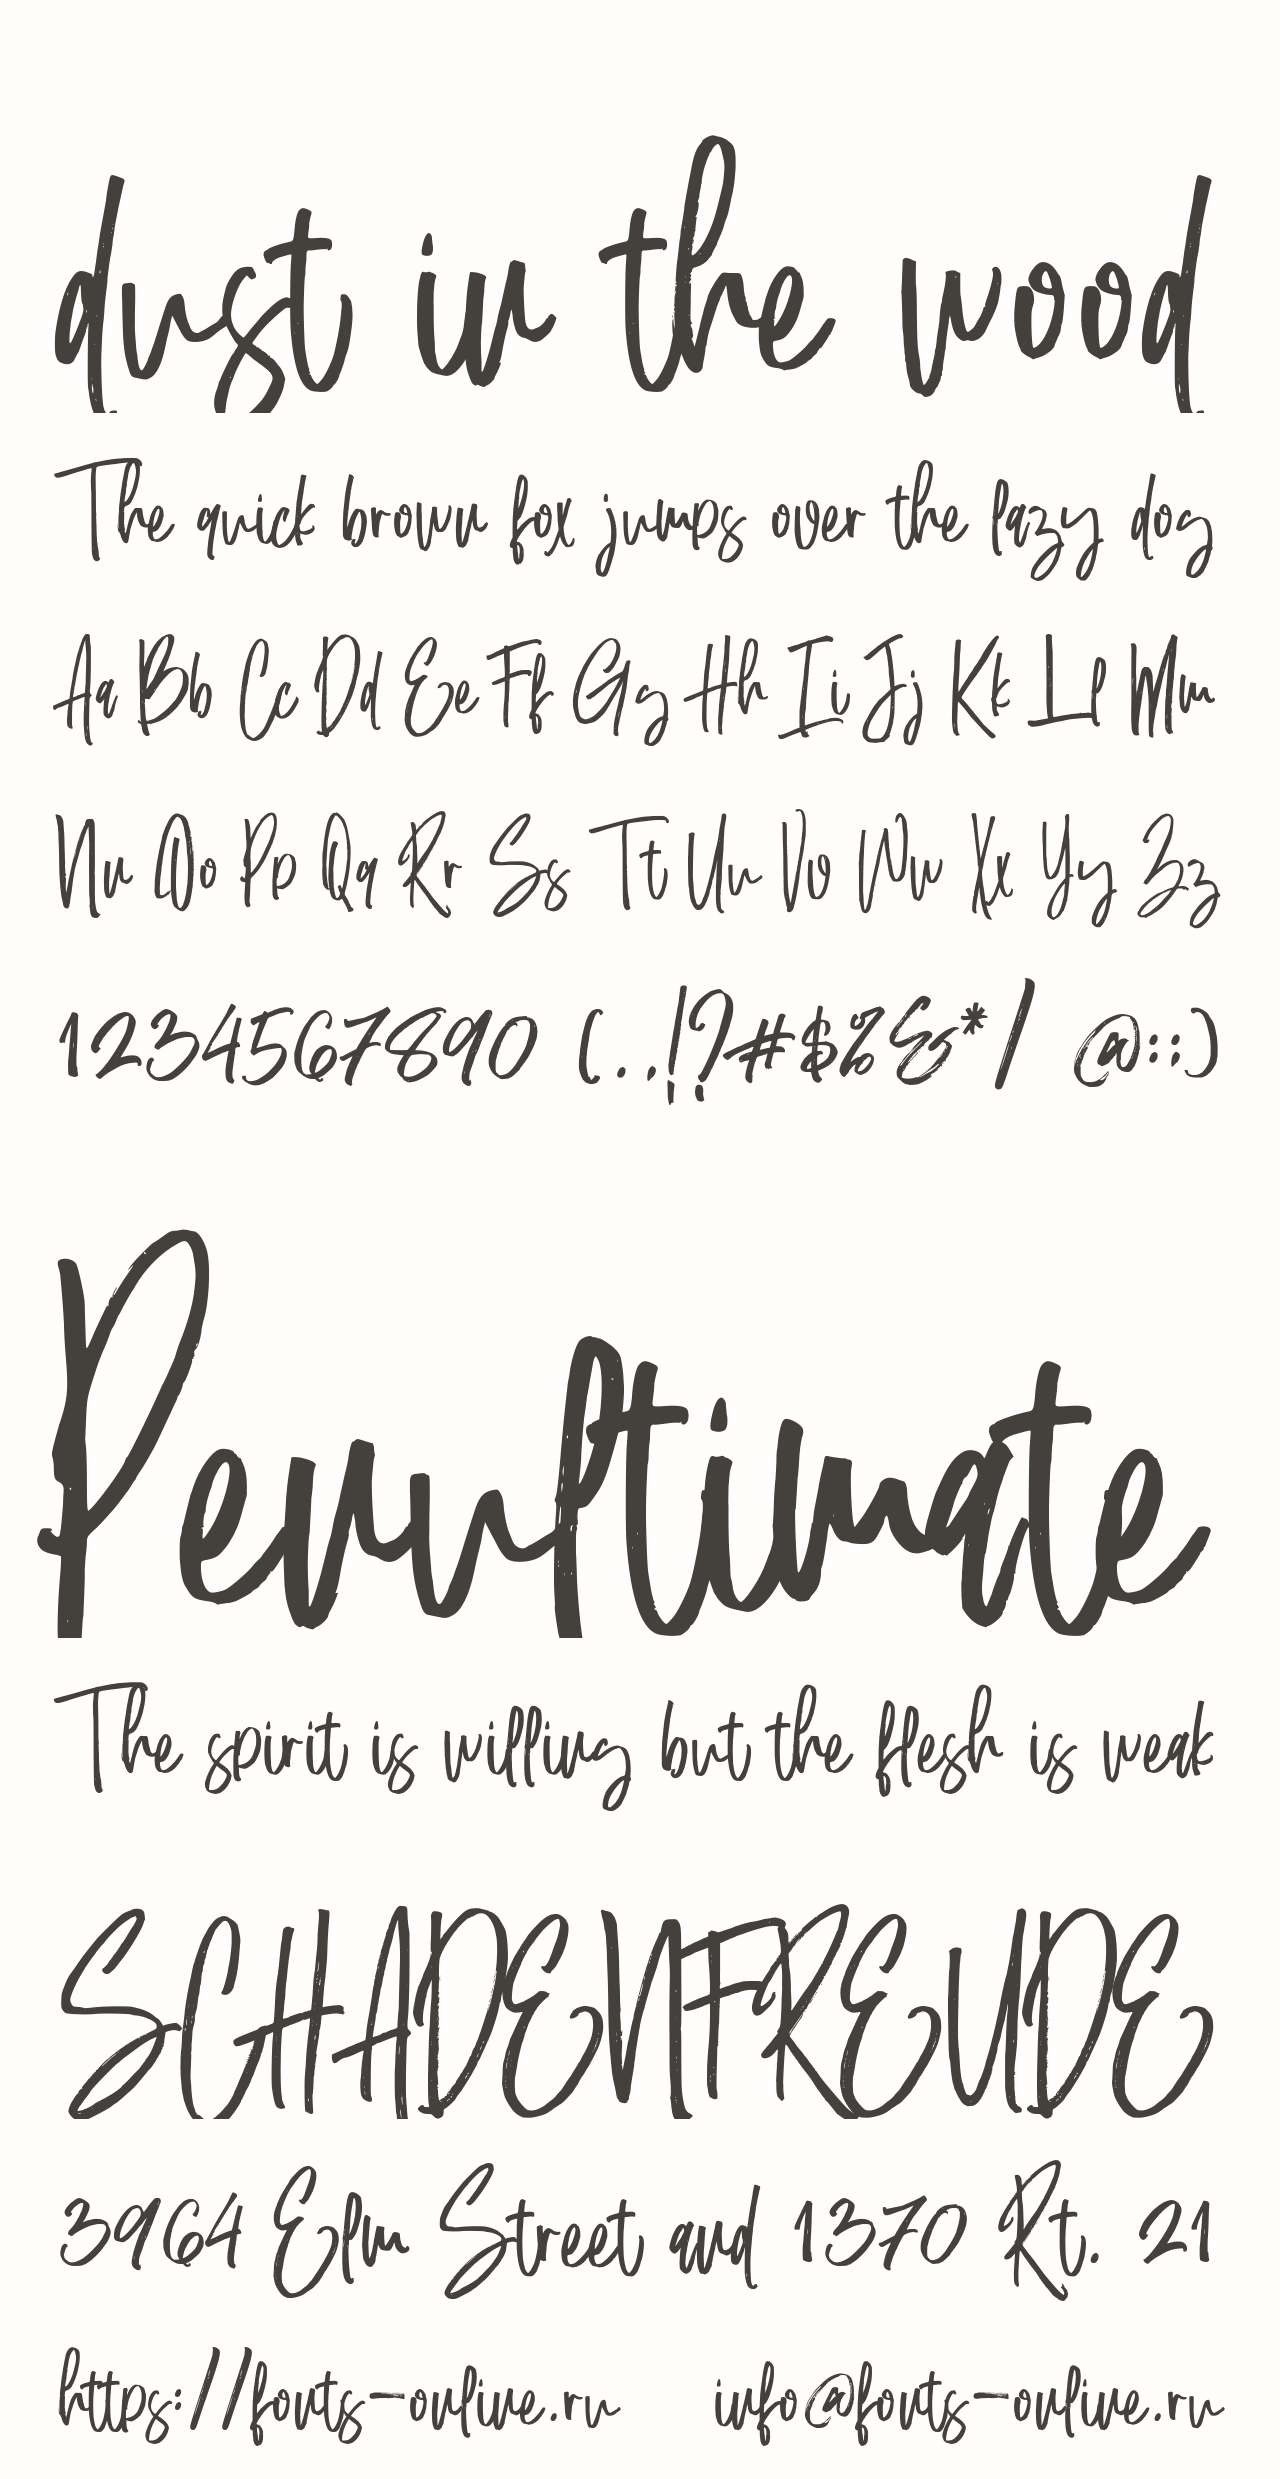 dust in the wood
The quick brown fox jumps over the lazy dog
Aa Bb Cc Dd Ee Ff Gg Hh Ii Jj Kk Ll Mm
Nn Oo Pp Qq Rr Ss Tt Uu Vv Ww Xx Yy Zz
1234567890 (.,!?#$%&*/ @:;)
Penultimate
The spirit is willing but the flesh is weak
SCHADENFREUDE
3964 Elm Street and 1370 Rt. 21
https://fonts-online.ru info@fonts-online.ru